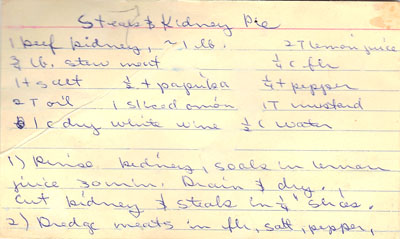 Steak & Kidney Pie
1 beef kidney, ~ 1 lb. 2 T lemon juice
3/4 lb. stew meat 1/4 c flr
1 t salt 1/2 t paprika 1/4 t pepper
2 T oil 1 sliced onion 1 T mustard
1 c dry white wine 1/2 c water
1) Rinse kidney, soak in lemon
juice 30 min. Drain & dry.
Cut kidney & steak in 1/4" slices.
2) Dredge meats in flr, salt, pepper,